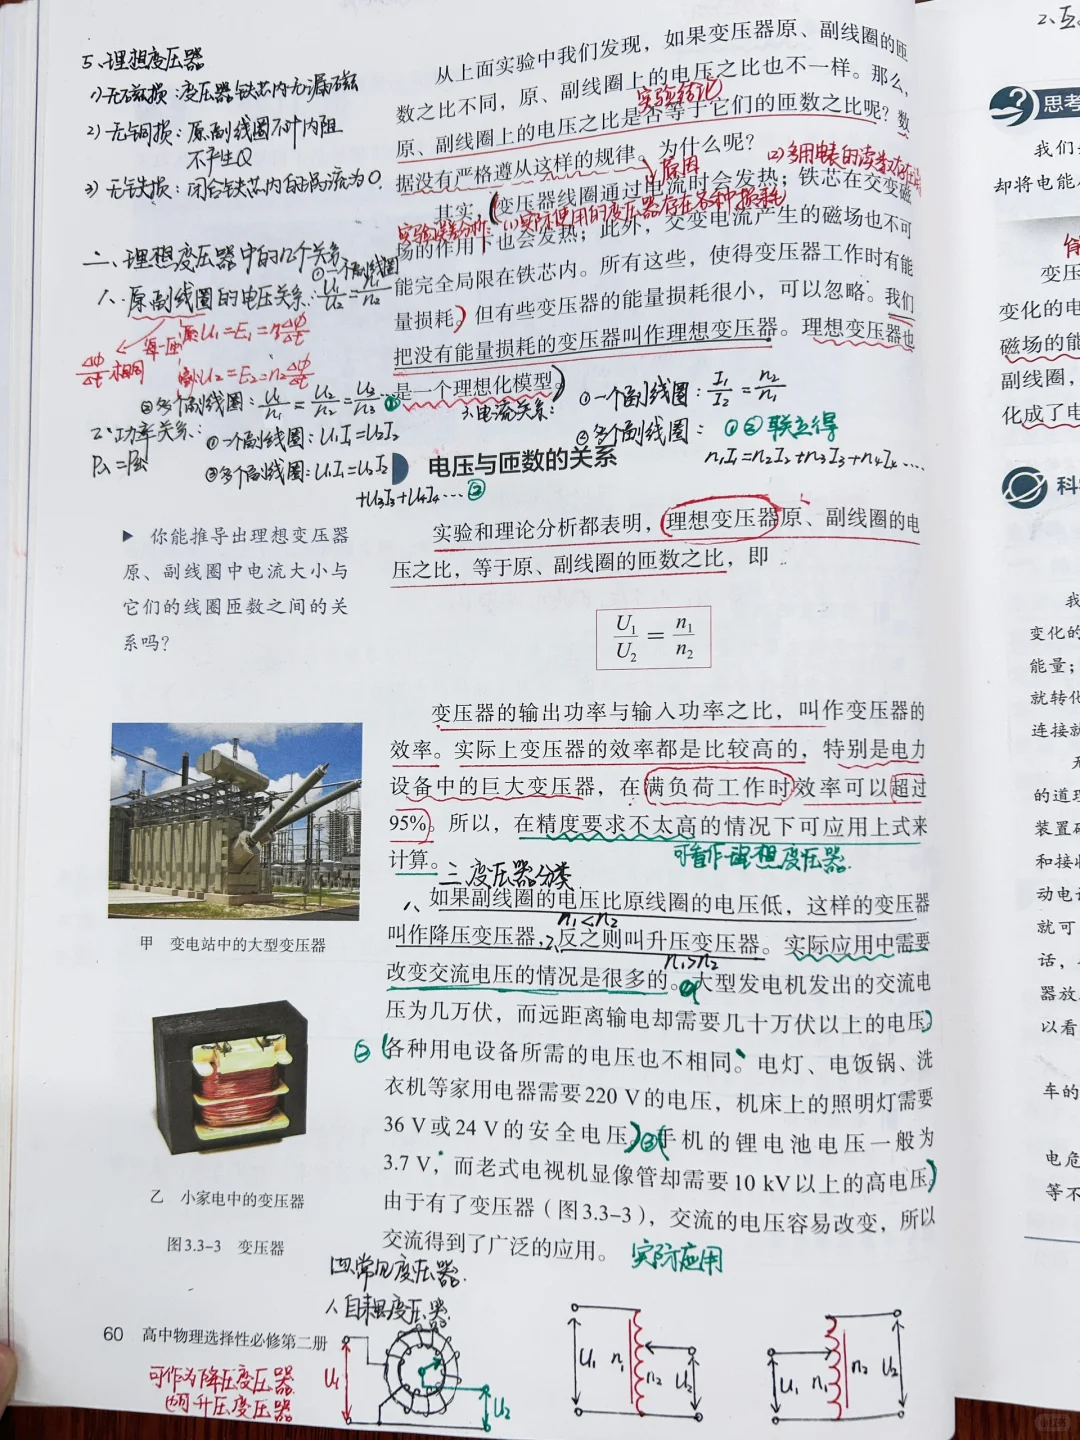 5、理想变压器
1)无磁损：变压器铁芯内无漏磁
2)无铜损：原副线圈不计内阻
不产生Q
3)无铁损：闭合铁芯内的涡流为0.
二、理想变压器中的几个关系
1.原副线圈的电压关系:
①一个副线圈
U₁/U₂=n₁/n₂
原U₁=E₁=n₁Δφ/Δt
副U₂=E₂=n₂Δφ/Δt
Δφ/Δt相同
②多个副线圈：U₁/n₁=U₂/n₂=U₃/n₃ ①
2、功率关系：
P入=P出
①一个副线圈：U₁I₁=U₂I₂
②多个副线圈：U₁I₁=U₂I₂
+U₃I₃+U₄I₄… ②
▶ 你能推导出理想变压器
原、副线圈中电流大小与
它们的线圈匝数之间的关
系吗？
甲 变电站中的大型变压器
乙 小家电中的变压器
图3.3-3 变压器
从上面实验中我们发现，如果变压器原、副线圈的匝
数之比不同，原、副线圈上的电压之比也不一样。那么，
实验结论
原、副线圈上的电压之比是否等于它们的匝数之比呢？数
据没有严格遵从这样的规律。为什么呢？
原因
(2)多用电表的读数
其实，变压器线圈通过电流时会发热；铁芯在交变磁
实验误差分析：(1)实际使用的变压器存在各种损耗
场的作用下也会发热；此外，交变电流产生的磁场也不可
能完全局限在铁芯内。所有这些，使得变压器工作时有能
量损耗。但有些变压器的能量损耗很小，可以忽略。我们
把没有能量损耗的变压器叫作理想变压器。理想变压器也
是一个理想化模型。
3.电流关系：
①一个副线圈：I₁/I₂=n₂/n₁
②多个副线圈：①②联立得
n₁I₁=n₂I₂+n₃I₃+n₄I₄…
电压与匝数的关系
实验和理论分析都表明，理想变压器原、副线圈的电
压之比，等于原、副线圈的匝数之比，即
U₁/U₂=n₁/n₂
变压器的输出功率与输入功率之比，叫作变压器的
效率。实际上变压器的效率都是比较高的，特别是电力
设备中的巨大变压器，在满负荷工作时效率可以超过
95%。所以，在精度要求不太高的情况下可应用上式来
计算。
可看作理想变压器.
三、变压器分类
1、如果副线圈的电压比原线圈的电压低，这样的变压器
n₁<n₂
叫作降压变压器，2、反之则叫升压变压器。实际应用中需要
n₁>n₂
改变交流电压的情况是很多的。①大型发电机发出的交流电
压为几万伏，而远距离输电却需要几十万伏以上的电压；
②各种用电设备所需的电压也不相同。电灯、电饭锅、洗
衣机等家用电器需要220 V的电压，机床上的照明灯需要
36 V或24 V的安全电压。③手机的锂电池电压一般为
3.7 V，而老式电视机显像管却需要10 kV以上的高电压。
由于有了变压器（图3.3-3），交流的电压容易改变，所以
交流得到了广泛的应用。
实际应用
四.常见变压器.
1.自耦变压器.
60 高中物理选择性必修第二册
可作为降压变压器
升压变压器
U₁
U₂
U₁ n₁ n₂ U₂
U₁ n₁ n₂ U₂
思考
我们
却将电能
变压
变化的电
磁场的能
副线圈，
化成了电
科
我
变化的
能量；
就转化
连接就
的道理
装置
和接收
动电
就可
话，
器放
以看
车的
电危
等不